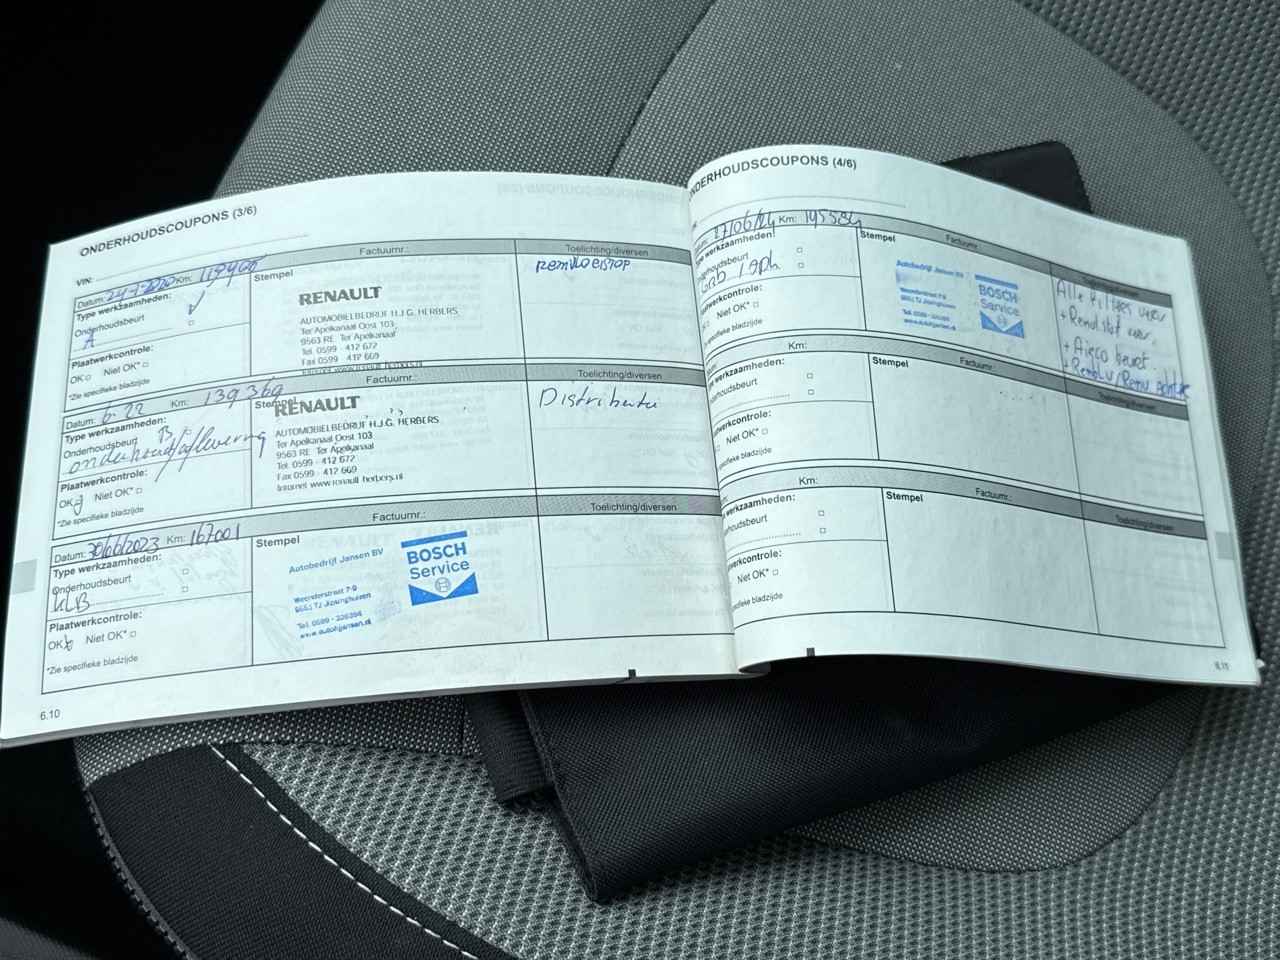 ONDERHOUDSCOUPONS (3/6)
VIN:
Datum: Km:
Factuurnr.:
Toelichting/diversen
Type werkzaamheden:
Onderhoudsbeurt
A
Stempel
RENAULT
AUTOMOBIELBEDRIJF H.J.G. HERBERS
Ter Apelkanaal Oost 103
9563 RE Ter Apelkanaal
Tel. 0599 - 412 672
Fax 0599 - 412 669
Remvloeistof
Plaatwerkcontrole:
OK Niet OK*
*Zie specifieke bladzijde
Datum: 6-22 Km: 139369
Factuurnr.:
Toelichting/diversen
Type werkzaamheden:
Onderhoudsbeurt B
onderhoud/aflevering
Stempel
RENAULT
AUTOMOBIELBEDRIJF H.J.G. HERBERS
Ter Apelkanaal Oost 103
9563 RE Ter Apelkanaal
Tel. 0599 - 412 672
Fax 0599 - 412 669
Internet www.renault-herbers.nl
Distributie
Plaatwerkcontrole:
OK Niet OK*
*Zie specifieke bladzijde
Datum: 30/06/2023 Km: 167001
Factuurnr.:
Toelichting/diversen
Type werkzaamheden:
Onderhoudsbeurt
KLB
Stempel
Autobedrijf Jansen BV
BOSCH
Service
Tel. 0599 - 326294
Plaatwerkcontrole:
OK Niet OK*
*Zie specifieke bladzijde
6.10
ONDERHOUDSCOUPONS (4/6)
27/06/24 Km: 195584
Factuurnr.:
Type werkzaamheden:
Onderhoudsbeurt
Stempel
Autobedrijf Jansen BV
BOSCH
Service
Alle filters verv
+ Airco beurt
Plaatwerkcontrole:
Niet OK*
specifieke bladzijde
Km:
Factuurnr.:
Toelichting/diversen
werkzaamheden:
Stempel
Niet OK*
specifieke bladzijde
Km:
Factuurnr.:
Toelichting/diversen
werkzaamheden:
Stempel
Niet OK*
specifieke bladzijde
6.11